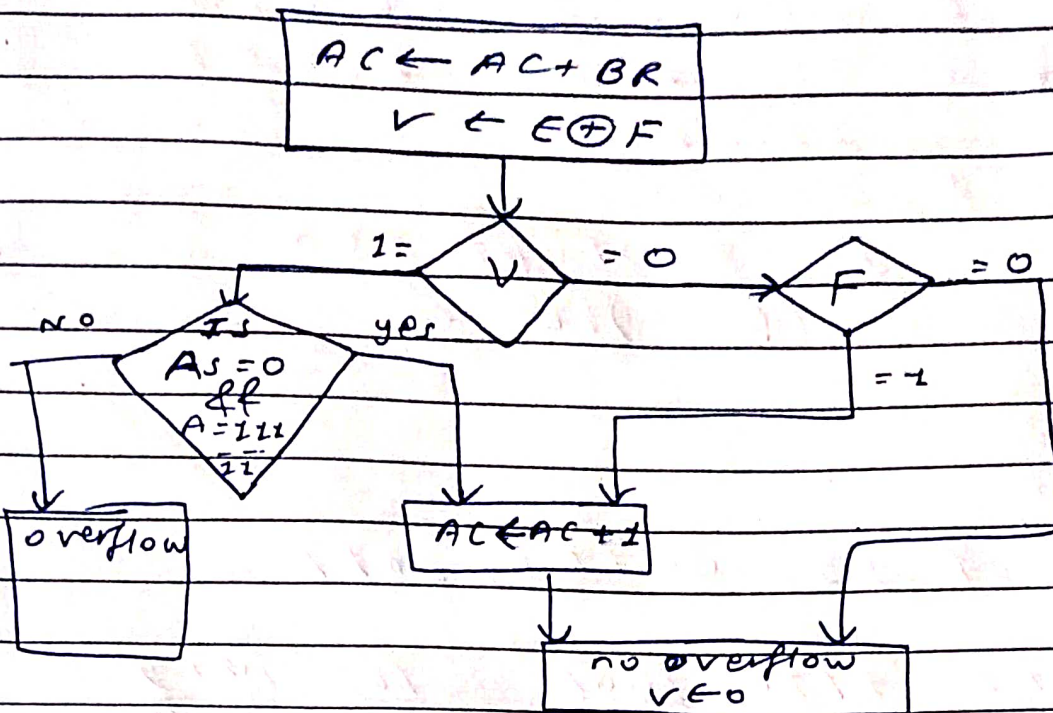 AC ← AC + BR
V ← E ⊕ F
1 =
V
= 0
F
= 0
= 1
No
Is
As = 0
&&
A = 111
11
yes
overflow
AC ← AC + 1
no overflow
V ← 0